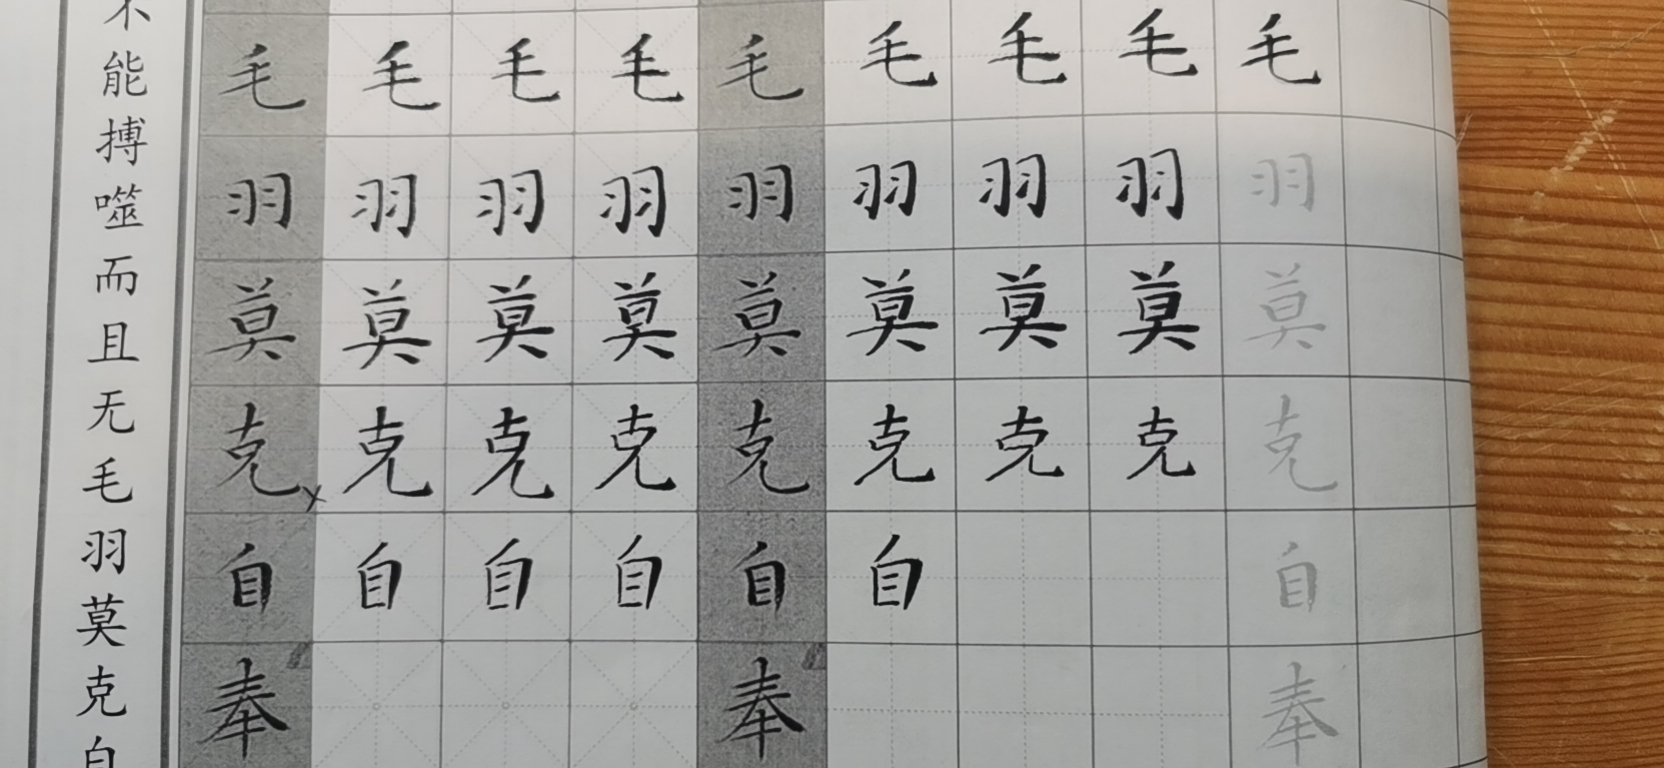 不能搏噬而且无毛羽莫克自
毛毛毛毛毛毛毛毛毛
羽羽羽羽羽羽羽羽羽
莫莫莫莫莫莫莫莫莫
克克克克克克克克克
自自自自自自自
奉奉奉